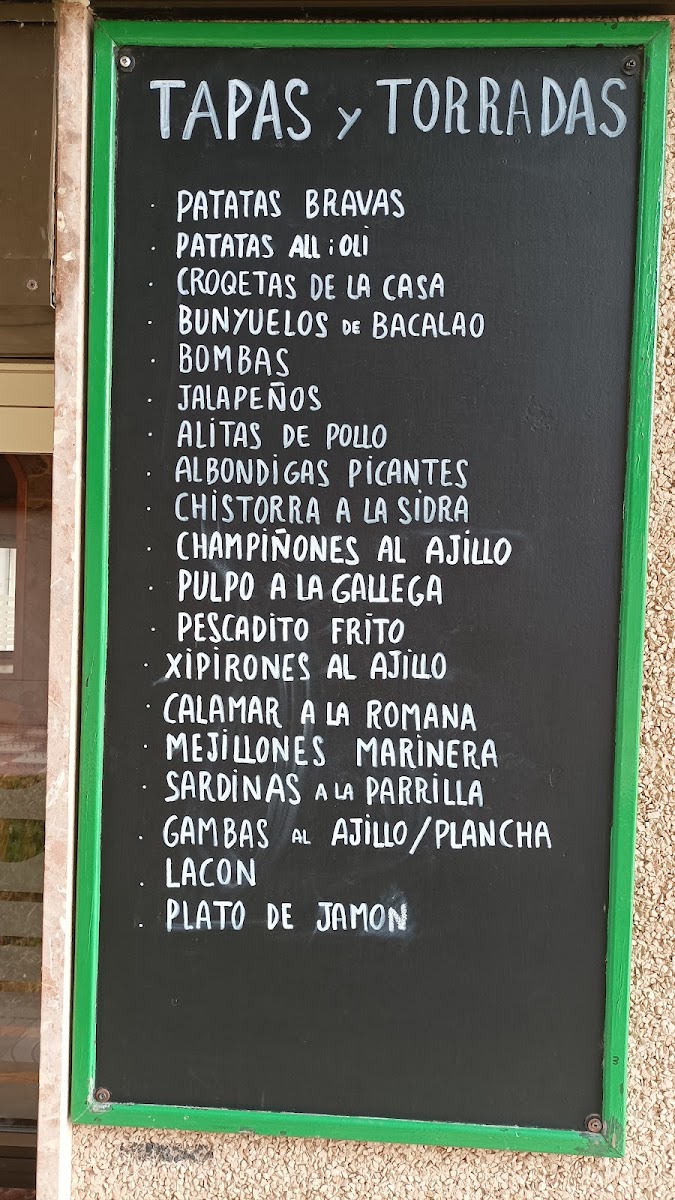 TAPAS y TORRADAS
· PATATAS BRAVAS
· PATATAS ALL i OLI
· CROQETAS DE LA CASA
· BUNYUELOS DE BACALAO
· BOMBAS
· JALAPEÑOS
· ALITAS DE POLLO
· ALBONDIGAS PICANTES
· CHISTORRA A LA SIDRA
· CHAMPIÑONES AL AJILLO
· PULPO A LA GALLEGA
· PESCADITO FRITO
· XIPIRONES AL AJILLO
· CALAMAR A LA ROMANA
· MEJILLONES MARINERA
· SARDINAS A LA PARRILLA
· GAMBAS AL AJILLO/PLANCHA
. LACON
. PLATO DE JAMON